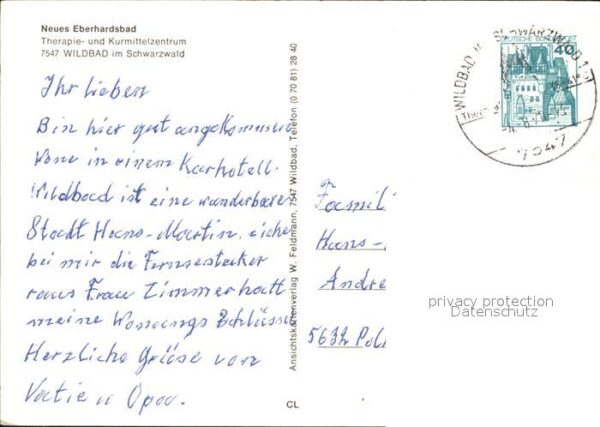 Neues Eberhardsbad
Therapie- und Kurmittelzentrum
7547 WILDBAD im Schwarzwald
Ihr Lieben
Bin hier gut angekommen
Wone in einem Kurhotell.
Wildbad ist eine wunderbare
Stadt Hans-Martin.
bei mir die Fernsestecker
raus Frau Zimmer hatt
meine Wonungs Schlüssel
Herzliche Grüse von
Vatie u Opa.
CL
Ansichtskartenverlag W. Feldmann, 7547 Wildbad, Telefon (0 70 81) 28 40
WILDBAD SCHWARZWALD 1
7547
DEUTSCHE BUNDESPOST
40
An
Famil
Hans-
Andre
5632
privacy protection
Datenschutz